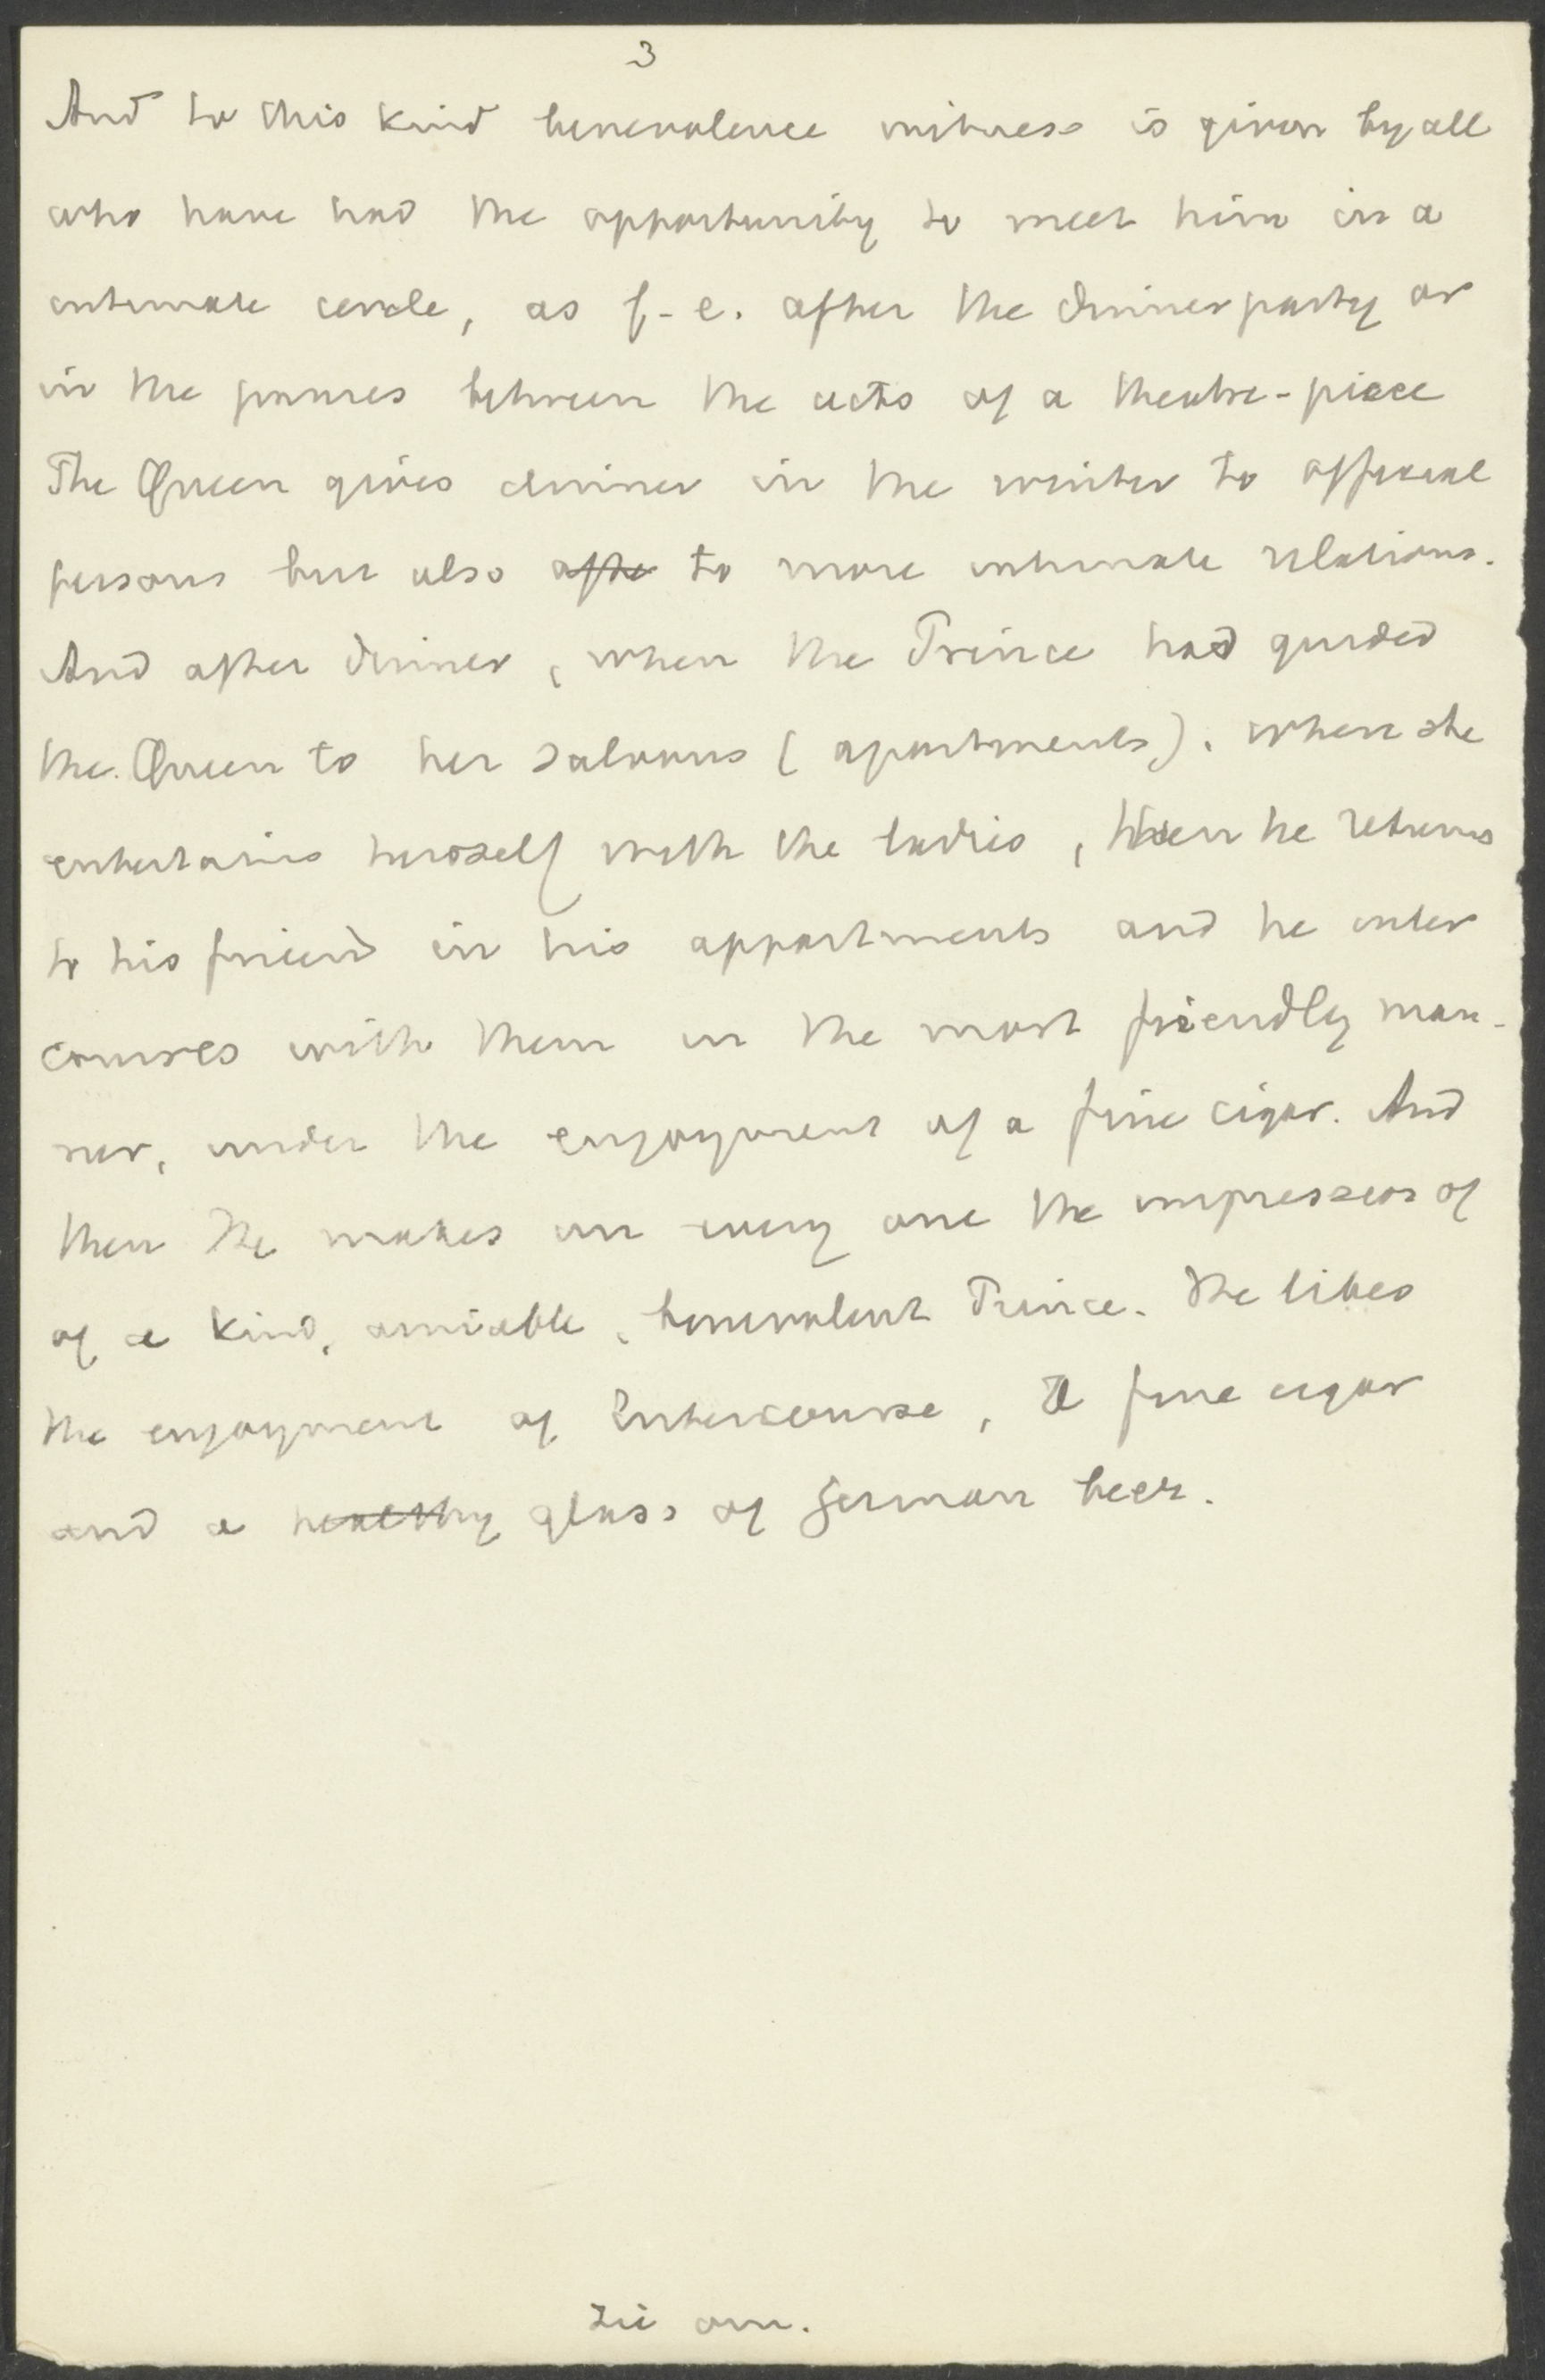 3
And to this kind benevolence witness is given by all
who have had the opportunity to meet him in a
intimate cercle, as f-e. after the dinnerparty or
in the pauses between the acts of a theatre-piece
The Queen gives dinner in the winter to official
persons but also afte to more intimate relations.
And after dinner, when the Prince had guided
the Queen to her saloons (apartments), where she
entertains herself with the ladies, then he returns
to his friend in his appartments and he inter
courses with them in the most friendly man-
ner, under the enjoyment of a fine cigar. And
then He makes on every one the impression of
of a kind, amiable, benevolent Prince. He likes
the enjoyment of Intercourse, a fine cigar
and a healthy glass of German beer.
zie om.